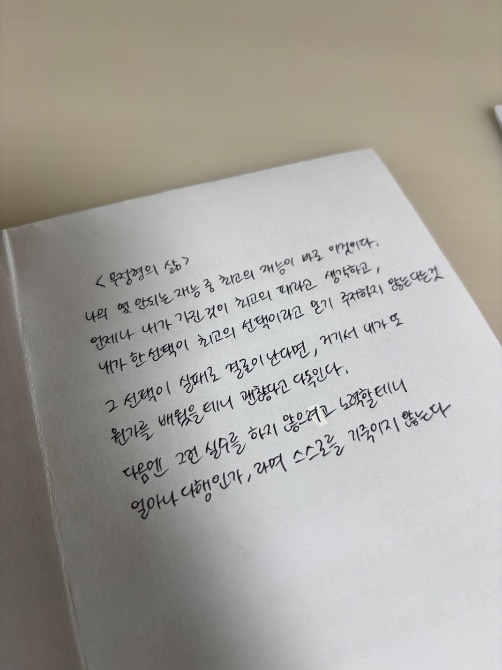 <무정형의 삶>
나의 몇 안되는 재능 중 최고의 재능이 바로 이것이다.
언제나 내가 가진 것이 최고의 패라고 생각하고,
내가 한 선택이 최고의 선택이라고 믿기 주저하지 않는다는 것
그 선택이 실패로 결론이 난다면, 거기서 내가 또
뭔가를 배웠을테니 괜찮다고 다독인다.
다음엔 그런 실수를 하지 않으려고 노력할테니
얼마나 다행인가, 라며 스스로를 기죽이지 않는다